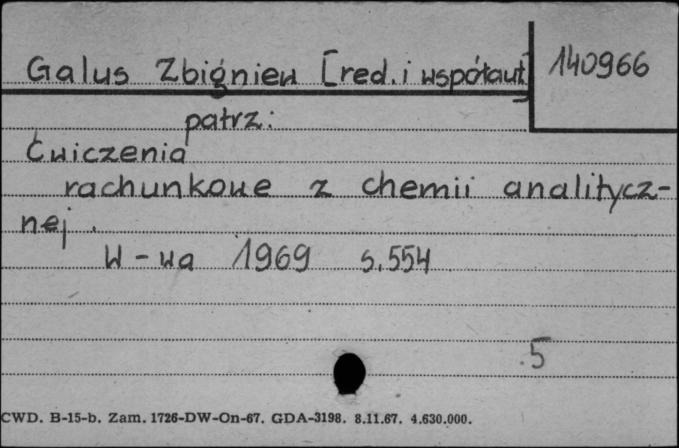 Galus Zbigniew [red. i współaut]
140966
patrz:
Ćwiczenia
rachunkowe z chemii analitycz-
nej.
W-wa 1969 s. 554
5
CWD. B-15-b. Zam. 1726-DW-On-67. GDA-3198. 8.11.67. 4.630.000.